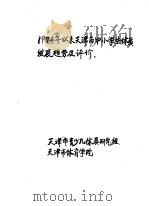 1974年以来天津市中小学生体质
发展趋势及评价.
天津市青少儿体质研究组
天津市体育学院